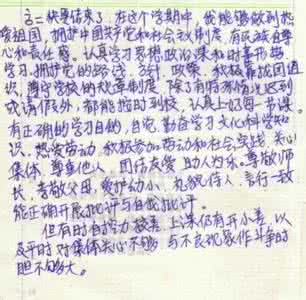 高二快要结束了,在这个学期中,我能够做到热
爱祖国,拥护中国共产党和社会主义制度,有民族自尊
心和责任感。认真学习思想政治课和时事形势
学习,拥护党的路线、方针、政策,积极靠拢团组
织,遵守学校的规章制度,除了有特殊情况迟到
或请假外,都能按时到校,认真上好每一节课。
有正确的学习目的,自觉、勤奋学习文化科学知
识,热爱劳动,积极参加劳动和社会实践,关心
集体,尊重他人,团结友爱,助人为乐。尊敬师
长,孝敬父母,爱护幼小,礼貌待人,言行一致
能正确开展批评与自我批评。
但有时自控力较差,上课仍有开小差,以
及平时对集体关心不够,与不良现象作斗争的
胆不够大。